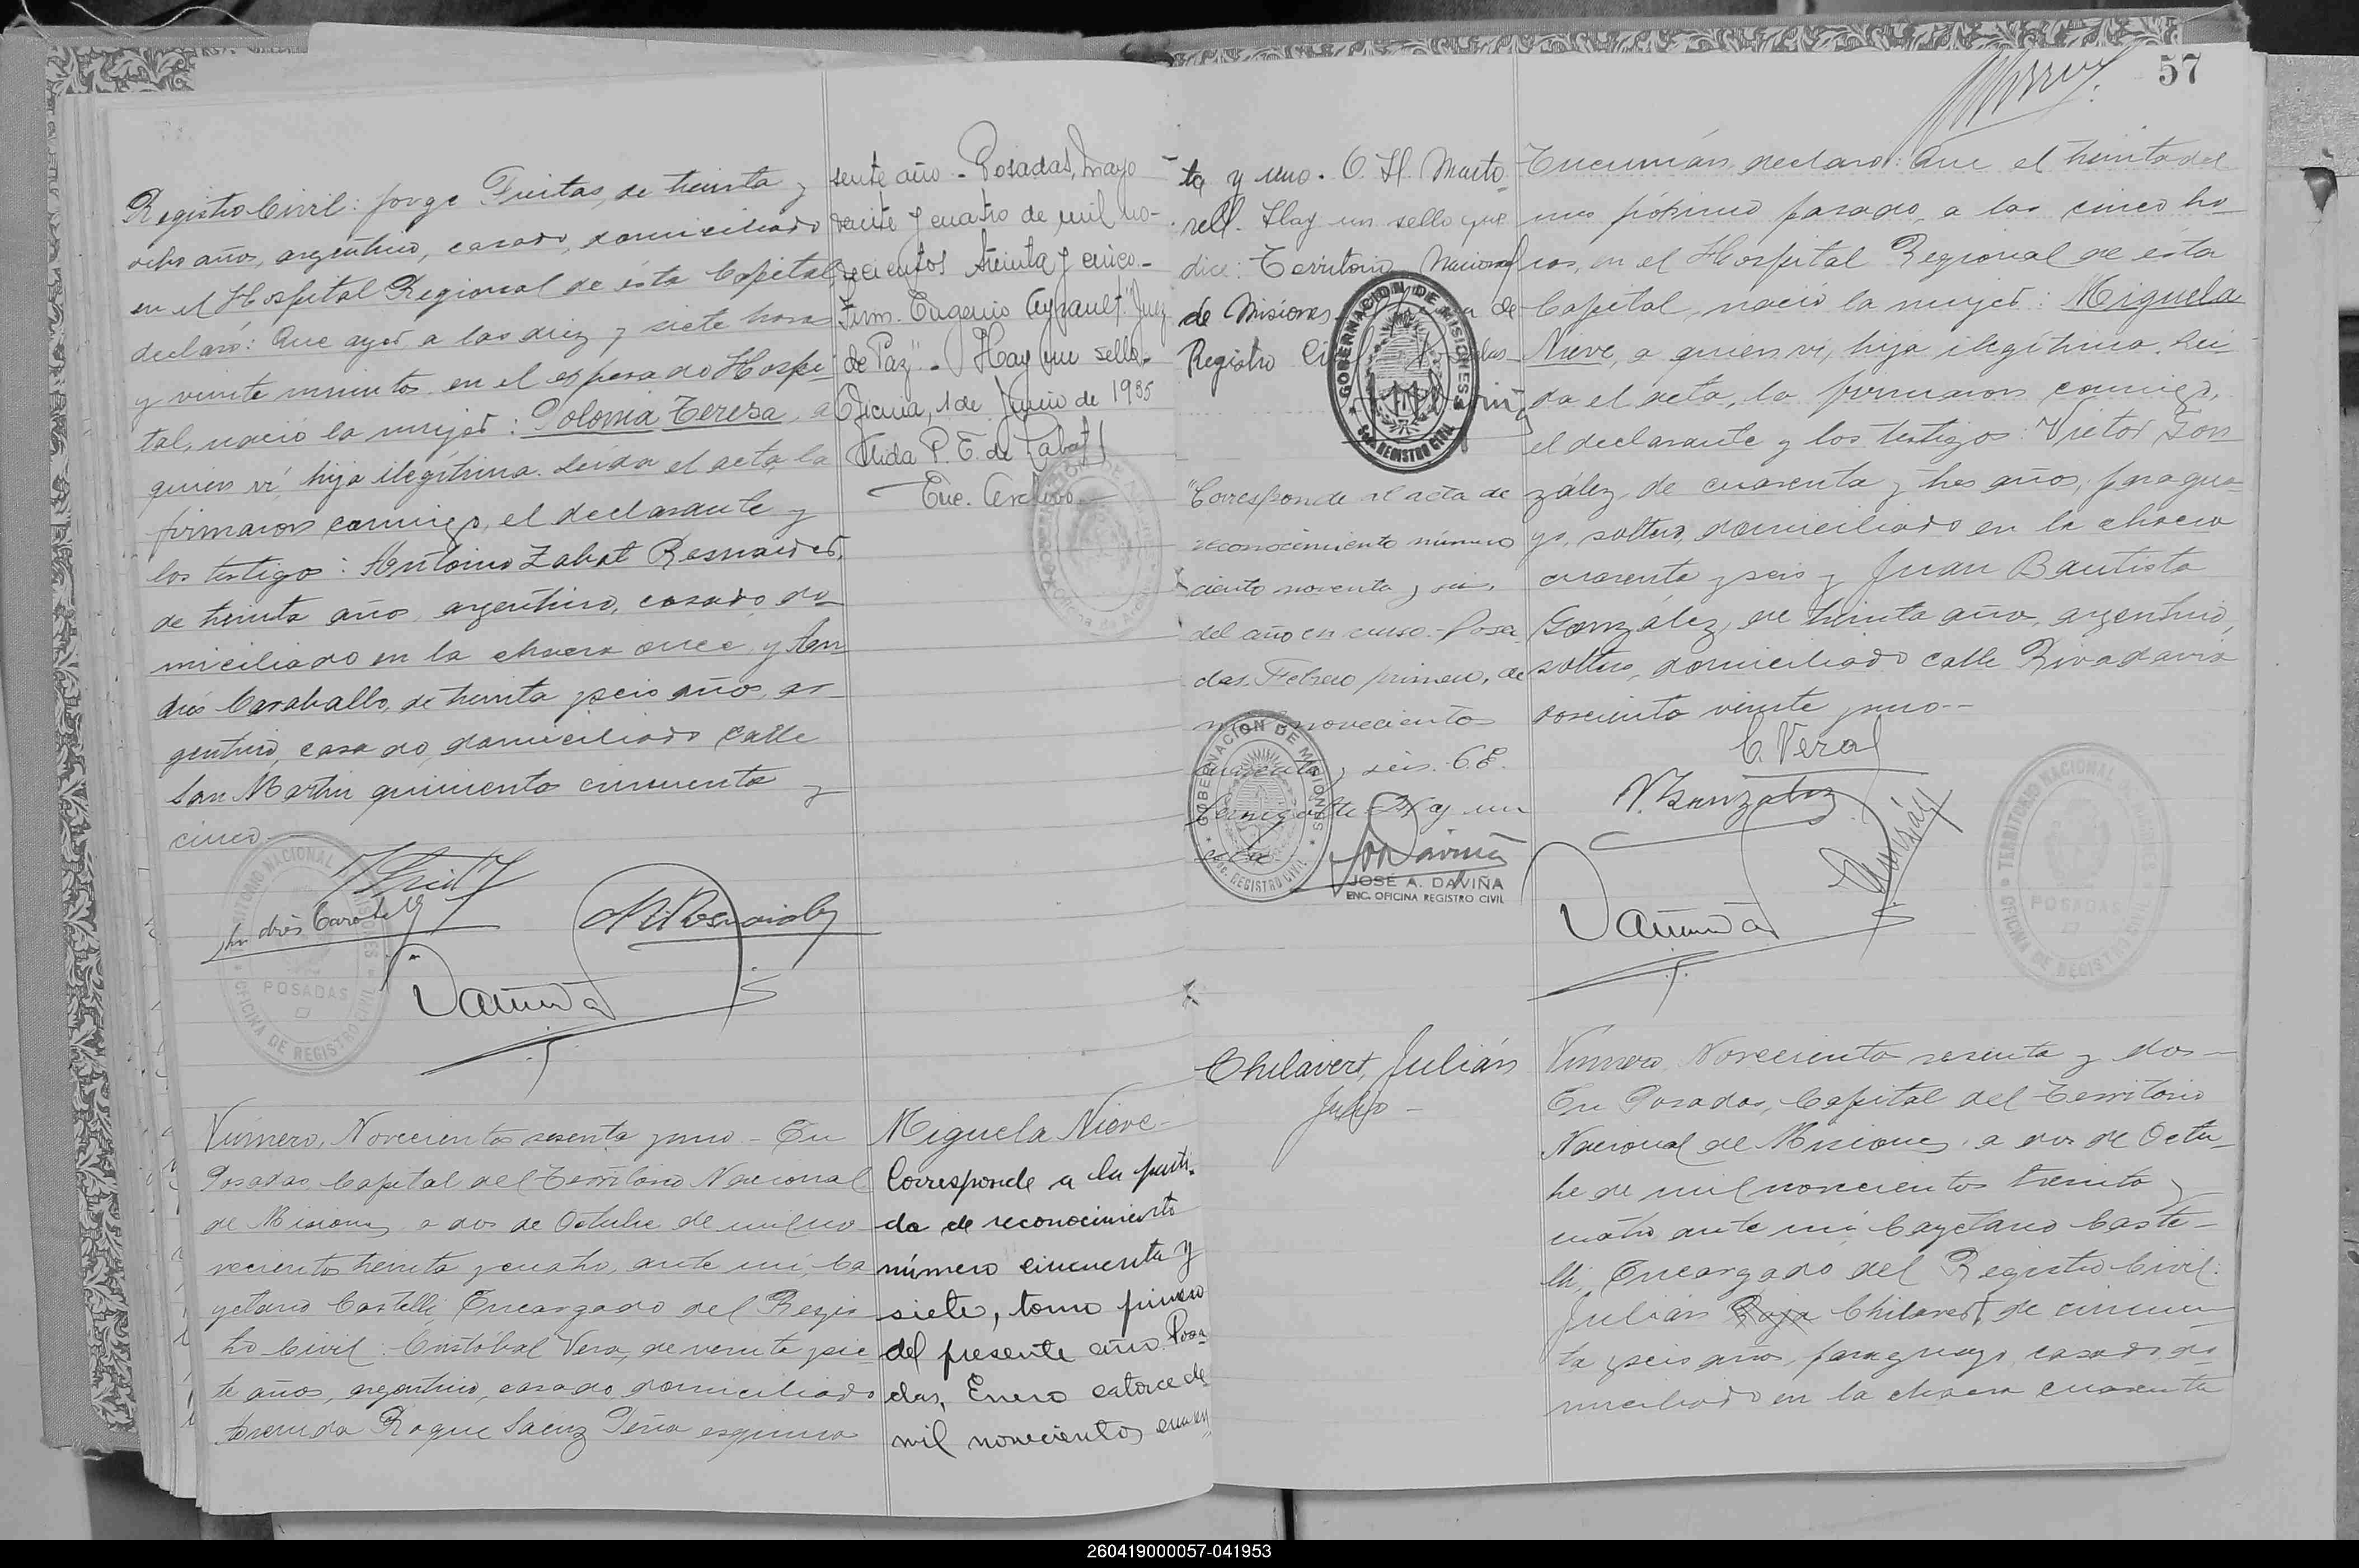 Registro Civil: Jorge Freitas, de treinta y
ocho años, argentino, casado, domiciliado
en el Hospital Regional de ésta Capital,
declaró: Que ayer, a las diez y siete horas
y veinte minutos en el espresado Hospi-
tal, nació la mujer: Polonia Teresa, a
quien ví, hija ilegítima. Leída el acta, la
firmaron conmigo, el declarante y
los testigos: Antonio Zabat Resnaider,
de treinta años, argentino, casado, do-
miciliado en la chacra once, y An-
drés Caraballo, de treinta y seis años, ar-
gentino, casado, domiciliado calle
San Martin quinientos cincuenta y
cinco.
Andrés Caraballo
TERRITORIO NACIONAL DE MISIONES
POSADAS
OFICINA DE REGISTRO CIVIL
Número, Novecientos sesenta y uno - En
Posadas Capital del Territorio Nacional
de Misiones, a dos de Octubre de mil no-
vecientos treinta y cuatro, ante mi, Ca-
yetano Castelli, Encargado del Regis-
tro Civil: Cristóbal Vera, de veinte y sie-
te años, argentino, casado, domiciliado
Avenida Roque Saenz Peña esquina
sente año - Posadas, Mayo
veinte y cuatro de mil no-
vecientos treinta y cinco.-
Firm. Eugenio "Juez
de Paz". Hay un sello.-
Oficina, 1 de Junio de 1935
Elida P. E. de Labat
Enc. Archivo
Miguela Nieve-
Corresponde a la parti-
da de reconocimiento
número cincuenta y
siete, tomo primero
del presente año. Posa-
das, Enero catorce de
mil novecientos cuaren
ta y uno. O. H. Marto-
rell. Hay un sello que
dice: Territorio Nacional
de Misiones de
Registro
GOBERNACION DE MISIONES
REGISTRO CIVIL
"Corresponde al acta de
reconocimiento número
ciento noventa y seis,
del año en curso.- Posa-
das, Febrero primero, de
mil novecientos
cuarenta y seis. C. E.
Hay un
sello
GOBERNACION DE MISIONES
REGISTRO CIVIL
JOSÉ A. DAVIÑA
ENC. OFICINA REGISTRO CIVIL
Chilavert, Julián
Julio -
57
Tucumán, declaró: Que el treinta del
mes próximo pasado, a las cinco ho-
ras, en el Hospital Regional de ésta
Capital, nació la mujer: Miguela
Nieve, a quien ví, hija ilegítima. Leí-
da el acta, la firmaron conmigo,
el declarante y los testigos: Victor Gon-
zález, de cuarenta y tres años, paragua-
yo, soltero, domiciliado en la chacra
cuarenta y seis y Juan Bautista
González, de treinta años, argentino,
soltero, domiciliado calle Rivadavia
doscientos veinte y uno.-
C. Vera
V. Gonzalez
TERRITORIO NACIONAL DE MISIONES
POSADAS
OFICINA DE REGISTRO CIVIL
Número, Novecientos sesenta y dos -
En Posadas, Capital del Territorio
Nacional de Misiones, a dos de Octu-
bre de mil novecientos treinta y
cuatro ante mi Cayetano Caste-
lli, Encargado del Registro Civil:
Julián Roja Chilavert, de cincuen-
ta y seis años, paraguayo, casado, do-
miciliado en la chacra cuarenta
260419000057-041953